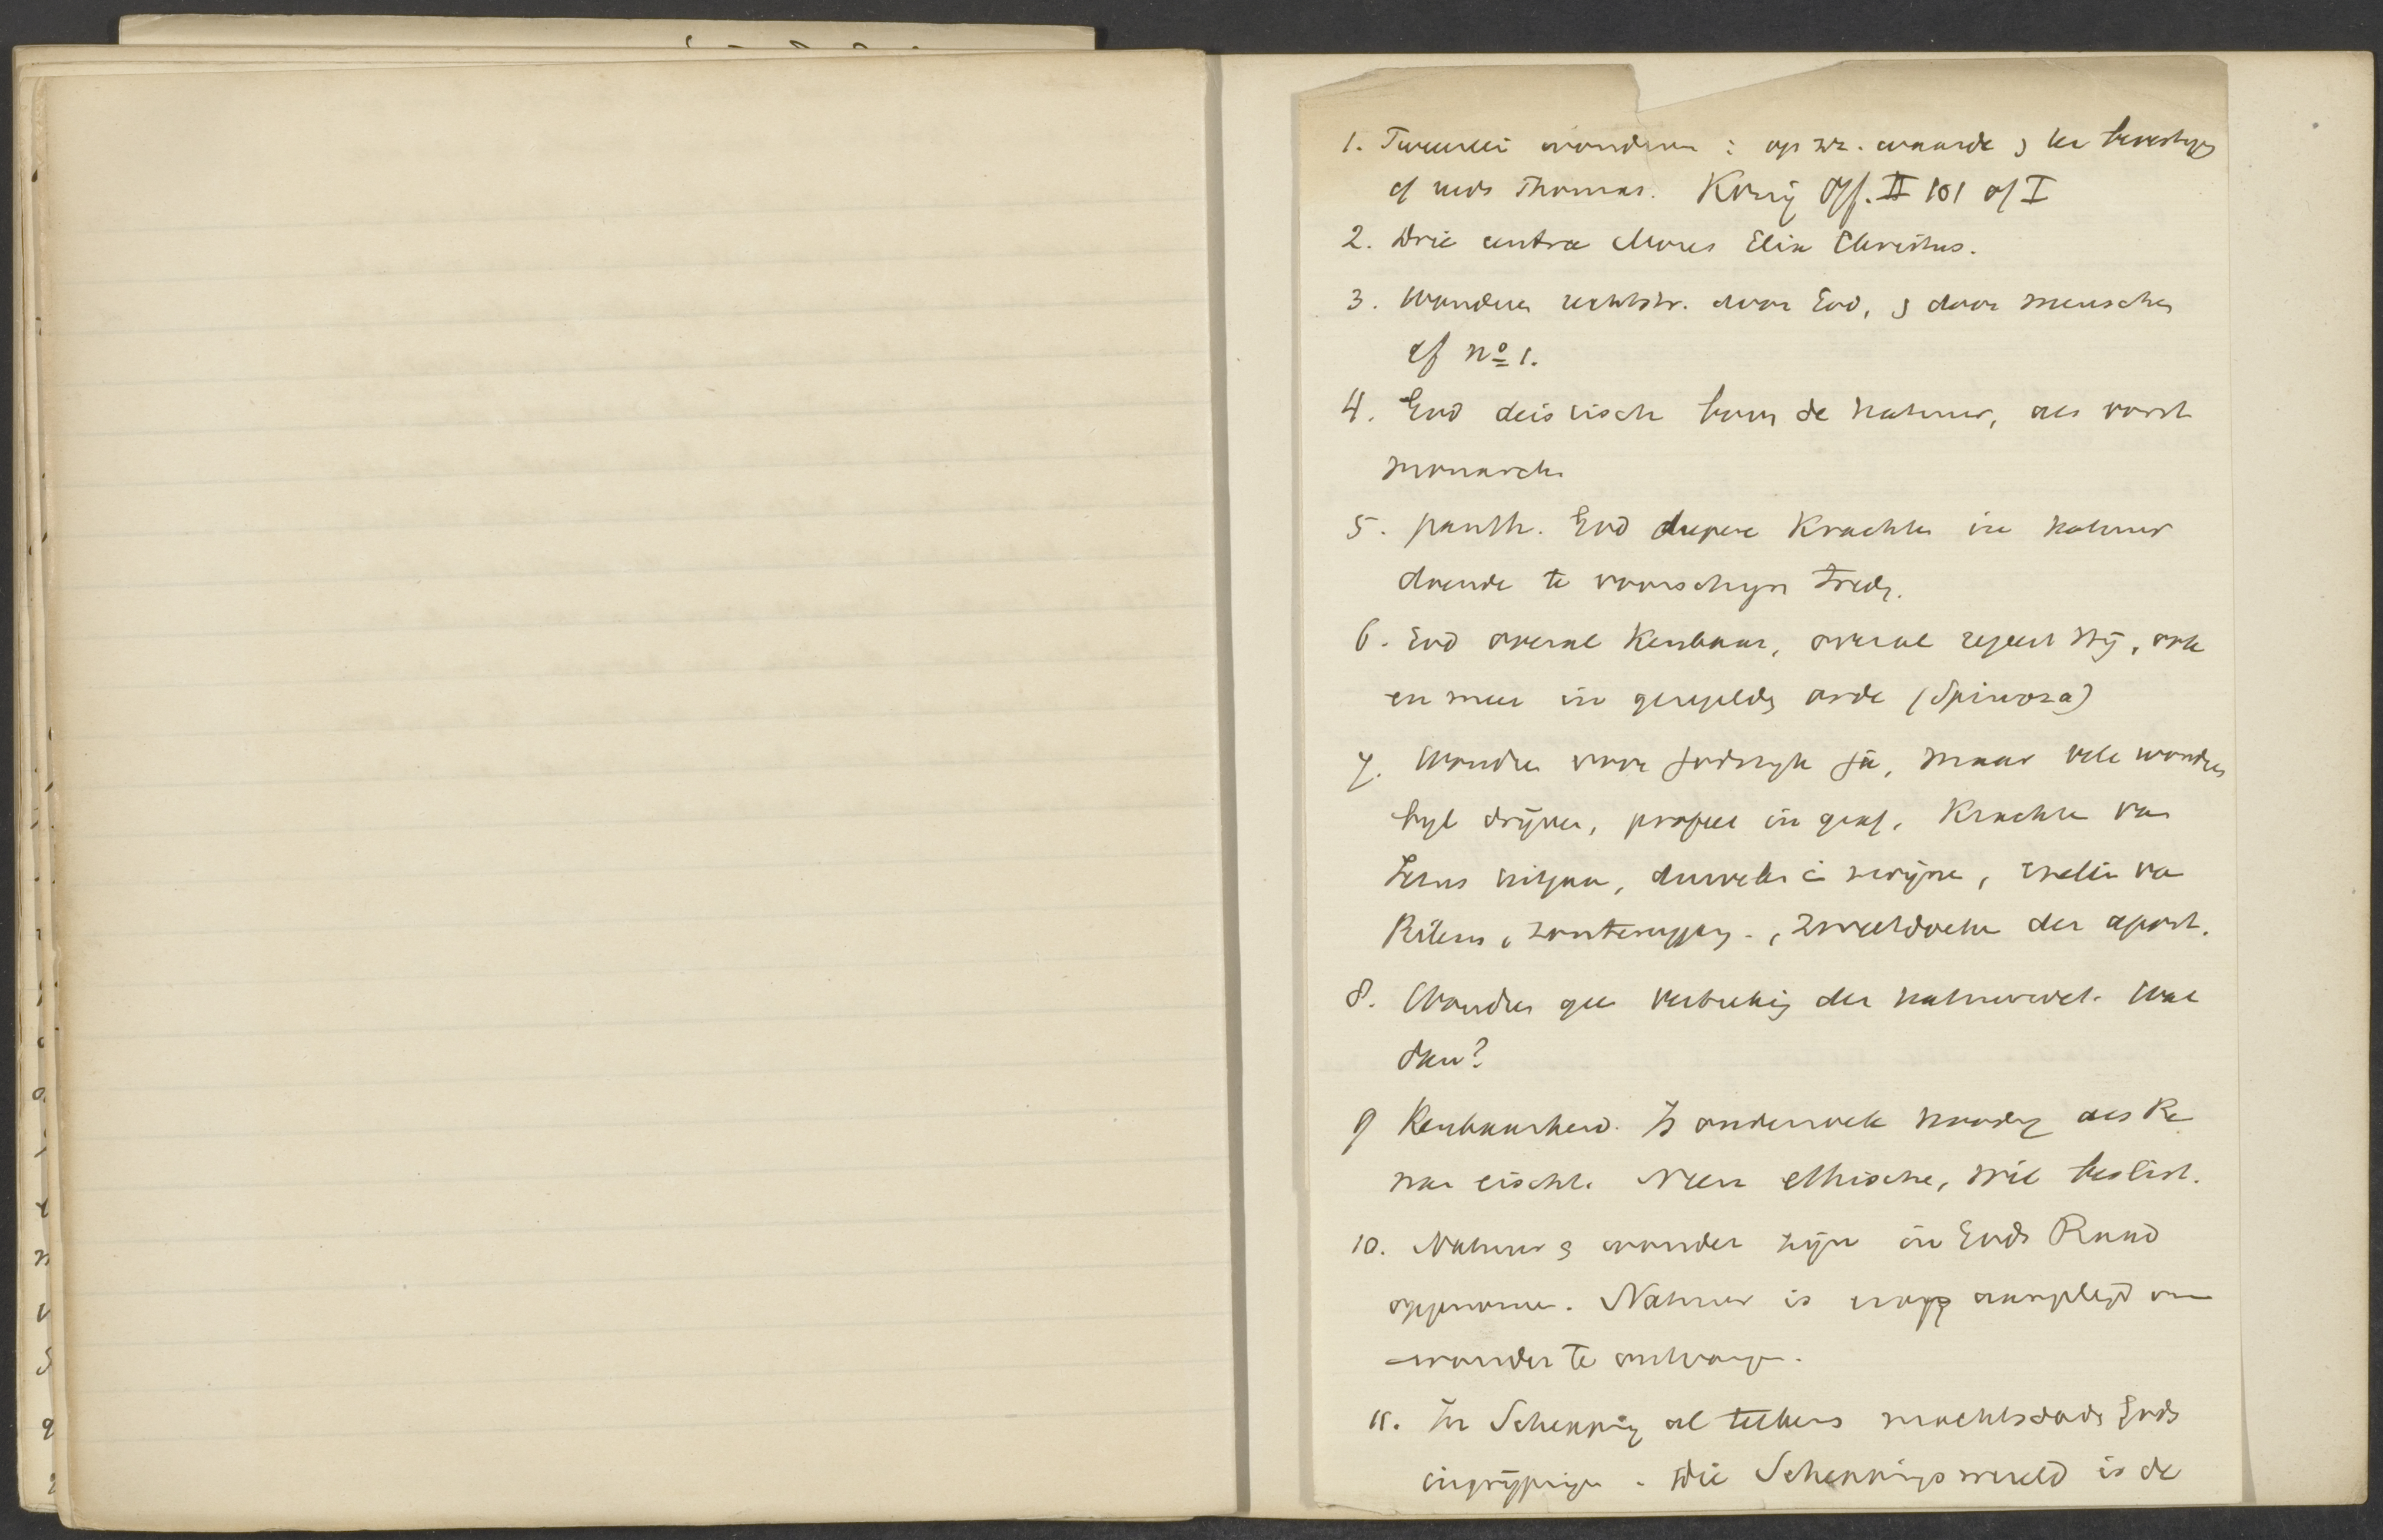 1. Tweeërlei wonderen : op zz. waarde , ter bevestiging
cf reeds Thomas. König Off. II 101 of I
2. Drie centra Mozes Elia Christus.
3. Wonderen rechtstr. door God, en door menschen
cf no 1.
4. God deistisch boven de natuur, als vorst
monarch
5. panth. God diepere Krachten in natuur
doende te voorschijn treden.
6. God overal Kenbaar, overal regeert Hij, ook
en meer in geregelde orde (Spinoza)
7. Wonder voor Godsrijk ja, maar vele wonderen
byl drijven, profeet in graf, Krachten van
Jezus uitgaan, duivelen in zwijnen,
Bileam, , zweetdoeken der apost.
8. Wonder geen verbreking der natuurwet. Wat
dan?
9 Kenbaarheid. Is onderzoek noodig als Re
nan eischt. Neen ethische, wil beslist.
10. Natuur en wonder zijn in Gods Raad
opgenomen. Natuur is erop aangelegd om
wonder te ontvangen.
11. In Schepping al telkens machtsdaden Gods
ingrijpingen. Die Scheppingswereld is de